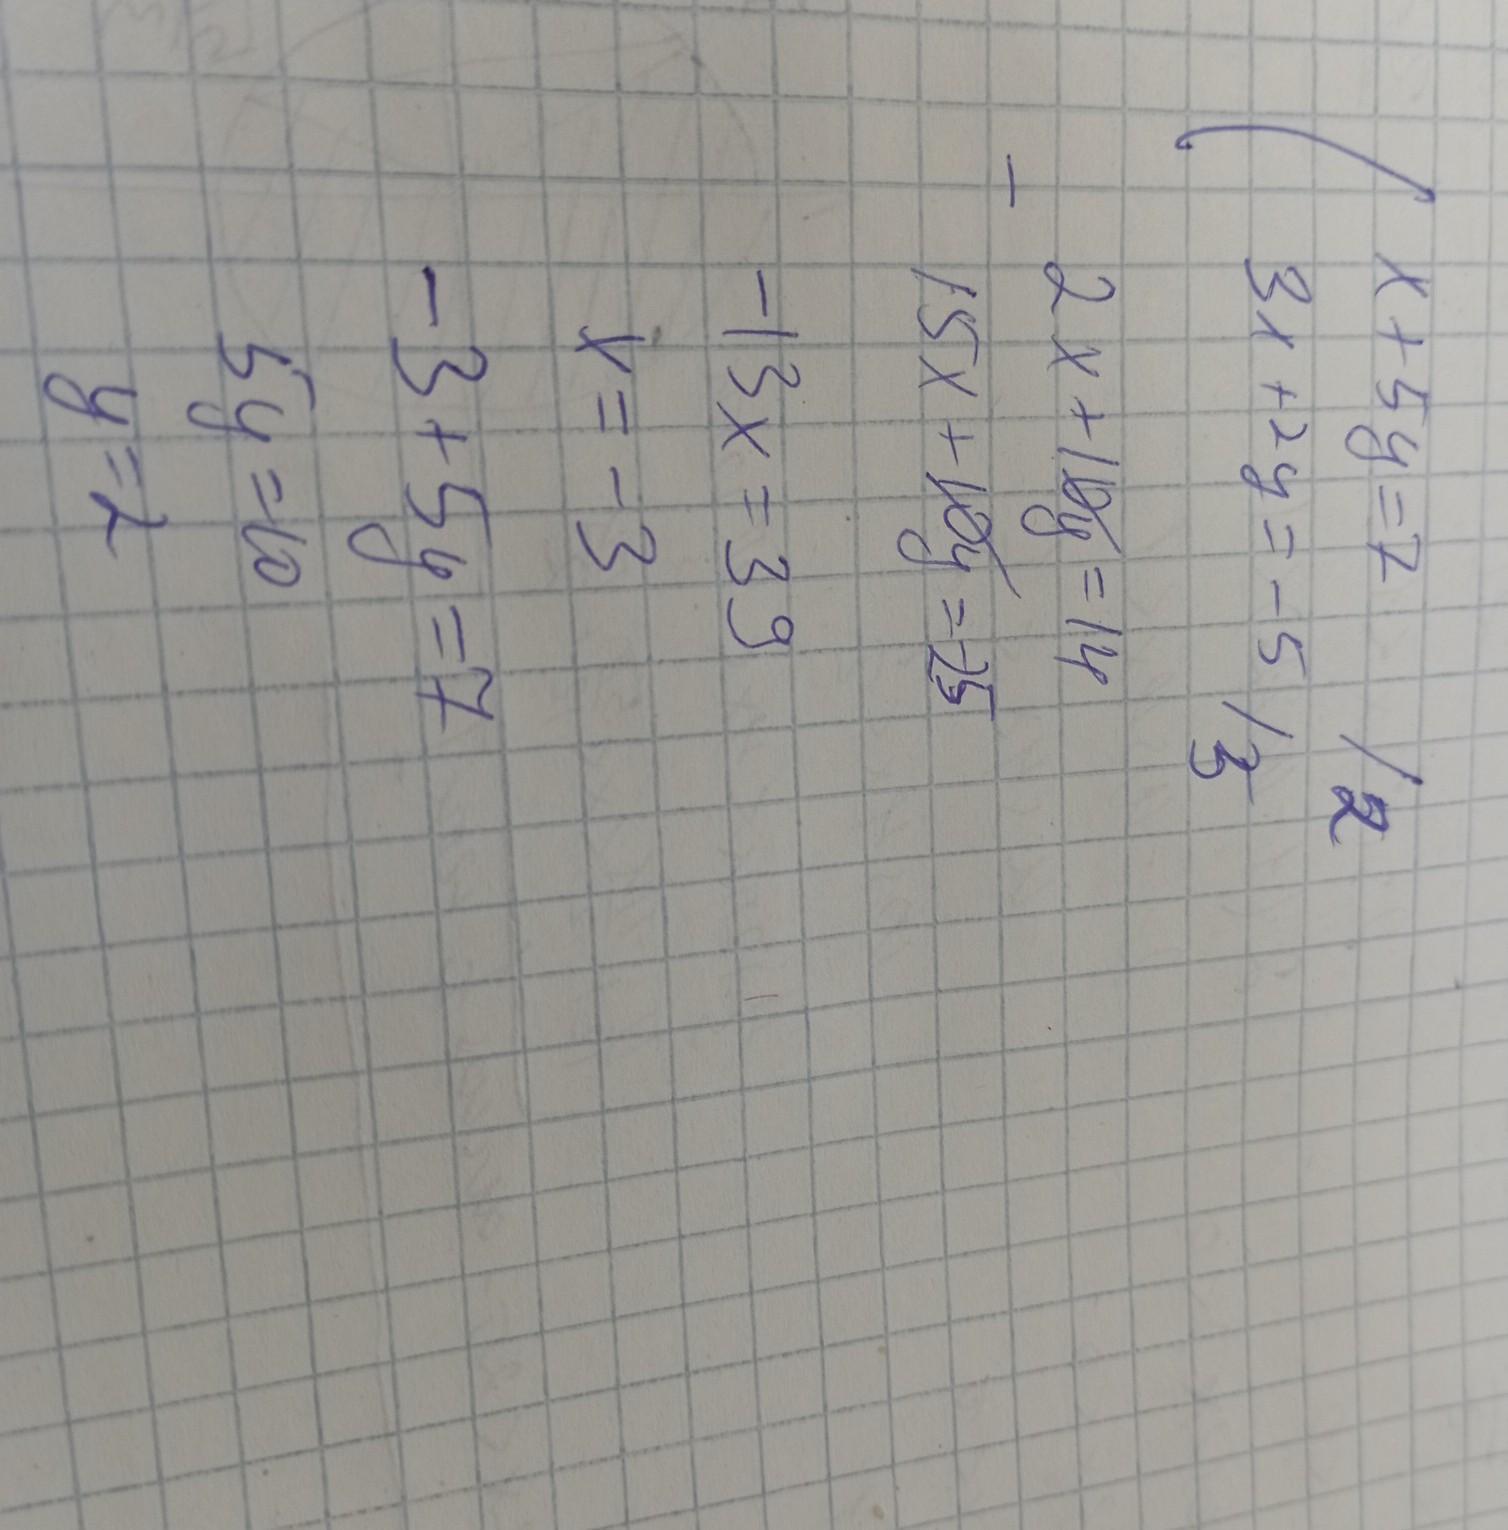 x + 5y = 7 /2
3x + 2y = -5 /3
- 2x + 10y = 14
15x + 10y = -25
-13x = 39
x = -3
-3 + 5y = 7
5y = 10
y = 2